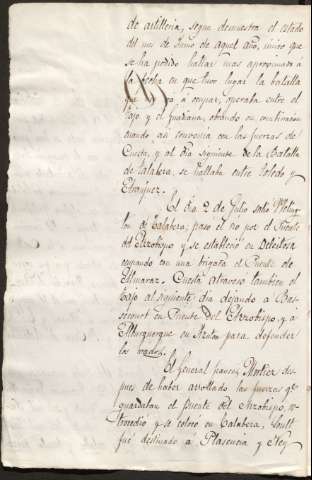 de artilleria, segun demuestra el estado
del mes de Junio de aquel año, unico que
se ha podido hallar mas aproximado á
la fecha en que tuvo lugar la batalla
que á ocupar, operaba entre el
Tajo y el Guadiana, obrando en combinacion
cuando así convenia con las fuerzas de
Cuesta, y al dia siguiente de la Batalla
de Talabera, se hallaba entre Toledo y
Aranjuez.
El dia 2 de Julio salió Welling-
ton de Talabera; pasó el rio por el Puente
del Arzobispo y se estableció en Deleitosa
ocupando con una brigada el Puente de
Almaraz. Cuesta atravesó tambien el
Tajo al siguiente dia dejando á Bas-
secourt en Puente del Arzobispo, y á
Alburquerque en Azutan para defender
los vados.
El General frances Mortier des-
pues de haber arrollado las fuerzas qe
guardaban el puente del Arzobispo, re-
trocedió y se colocó en Talabera, Soult
fué destinado á Plasencia y Ney